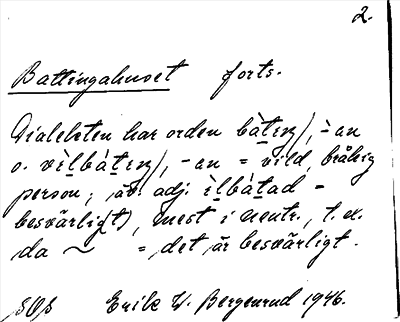 2.
Battingahuset forts.
Dialekten har orden bàtiŋ, -an
o. vìlbàtiŋ, -an = vild, bråkig
person; äv. adj. ìlbàtad =
besvärlig(t), mest i neutr., t. ex.
da ~ = det är besvärligt.
Erik W. Bergenrud 1946.